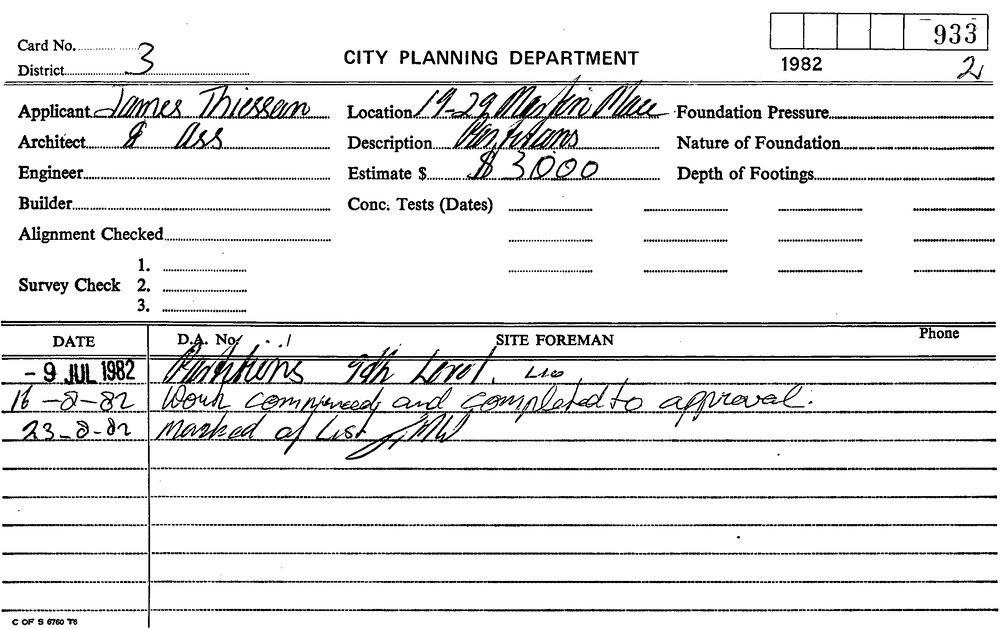 933
Card No.
3
District
CITY PLANNING DEPARTMENT
1982
2
Applicant James Thiessen
Location 19-29 Martin Place
Foundation Pressure
Architect & Ass
Description Partitions
Nature of Foundation
Engineer
Estimate $ $ 3000
Depth of Footings
Builder
Conc. Tests (Dates)
Alignment Checked
1.
Survey Check 2.
3.
DATE D.A. No. SITE FOREMAN Phone
- 9 JUL 1982 Partitions 9th Level.
16-8-82 Work commenced and completed to approval.
23-8-82 Marked of List
C OF S 6760 T6